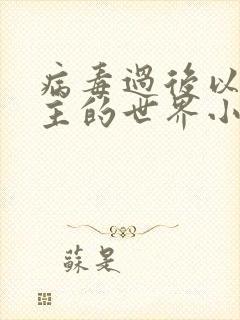 病毒過後以
主的世界小
蘇是